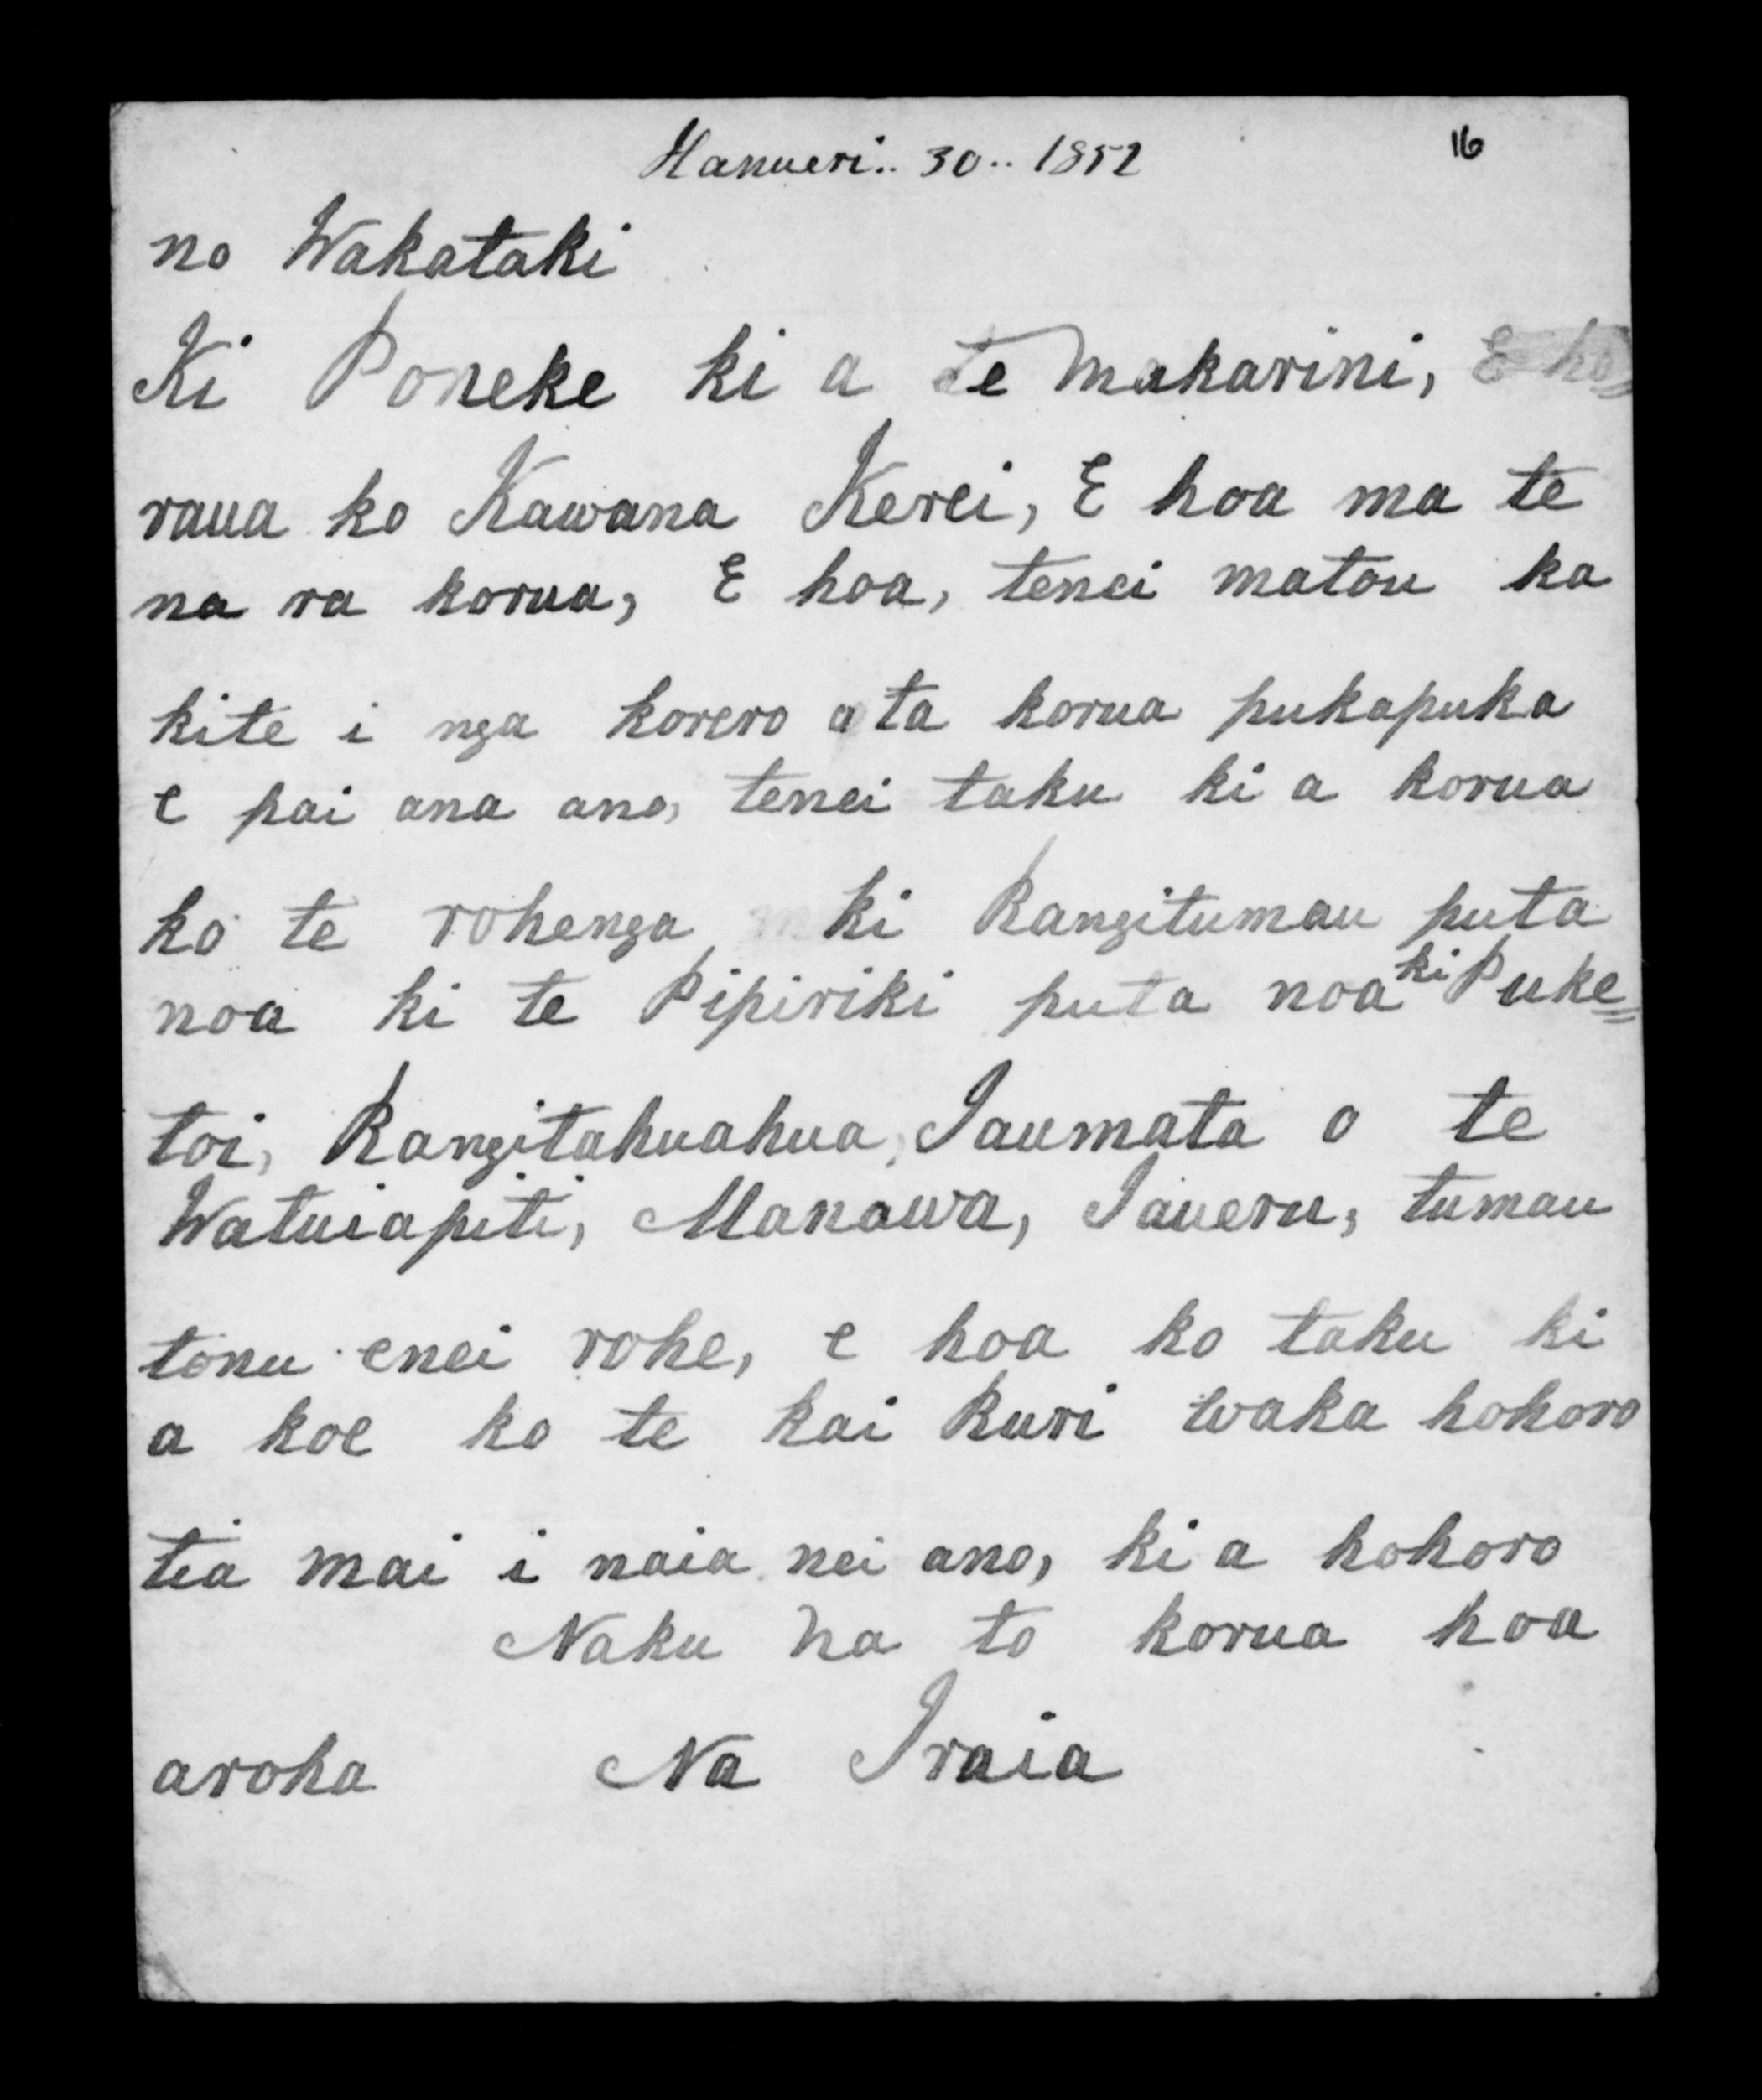 Hanueri.. 30.. 1852
16
no Wakataki
Ki Poneke ki a te Makarini,
raua ko Kawana Kerei, E hoa ma te
na ra korua, E hoa, tenei matou ka
kite i nga korero a ta korua pukapuka
e pai ana ano, tenei taku ki a korua
ko te rohenga ki Rangitumau puta
noa ki te Pipiriki puta noa ki Puke=
toi, Rangitahuahua, Taumata o te
Watuiapiti, Manawa, Taueru, tumau
tonu enei rohe, e hoa ko taku ki
a koe ko te kai kuri waka hohoro
tia mai i naia nei ano, ki a hohoro
Naku na to korua hoa
aroha Na Iraia